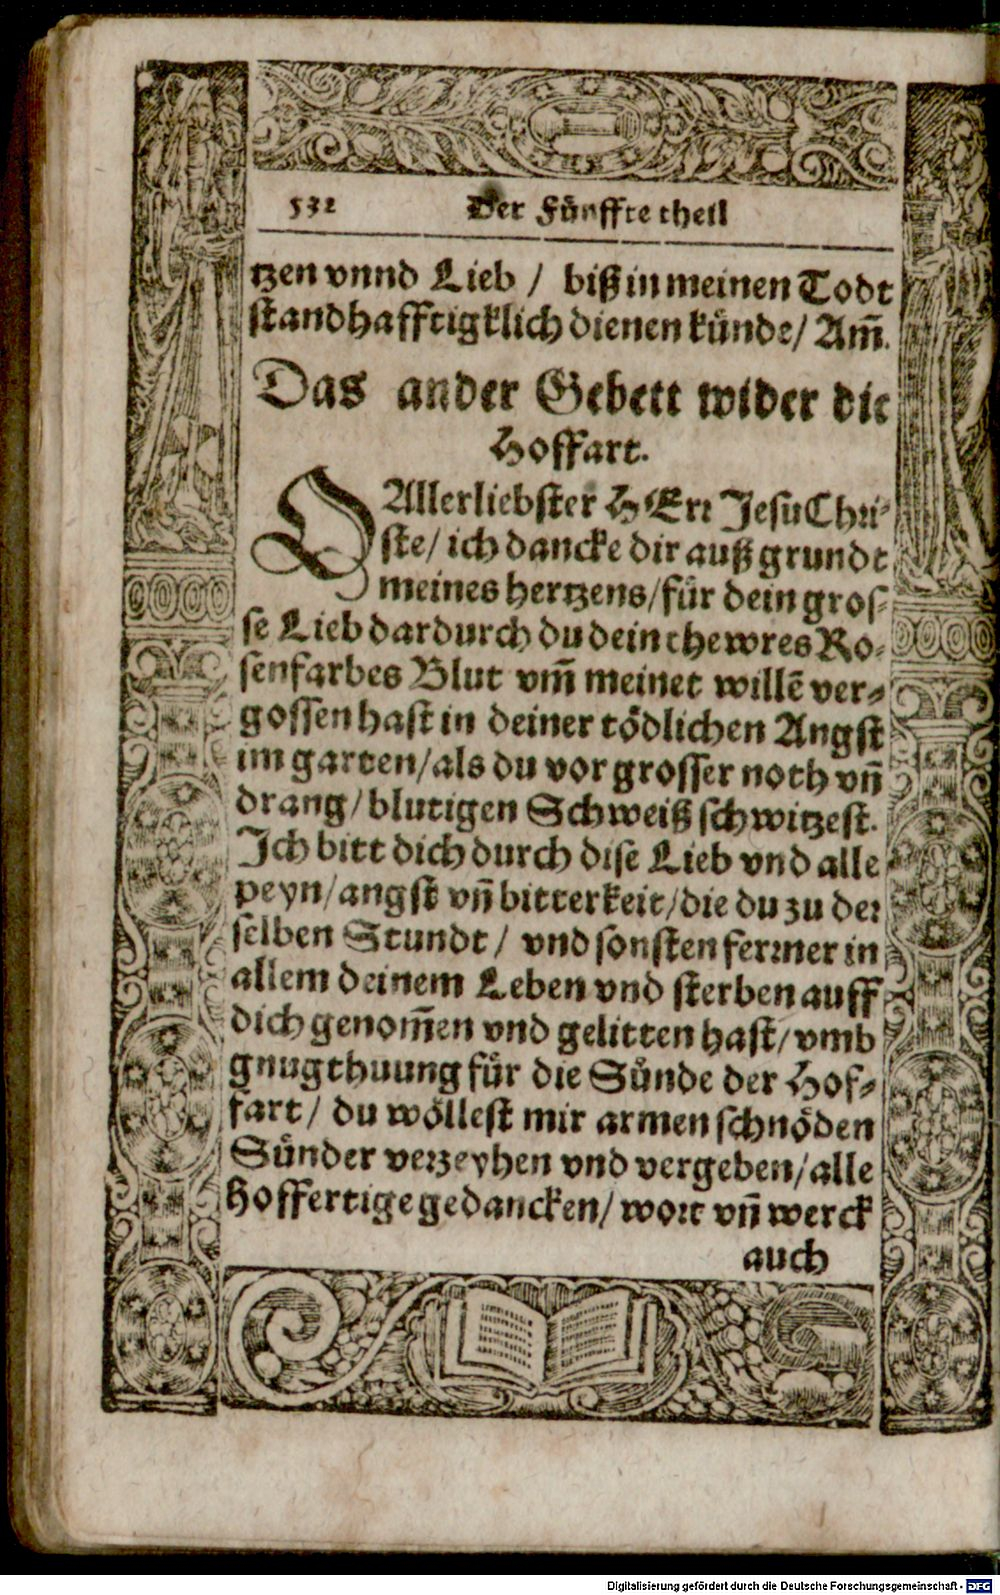 532 Der Fünffte theil
tzen vnnd Lieb / biß in meinen Todt
standhafftigklich dienen künde / Am̃.
Das ander Gebett wider die
Hoffart.
O Allerliebster HErr Jesu Chri-
ste / ich dancke dir auß grundt
meines hertzens / für dein gros-
se Lieb dardurch du dein thewres Ro-
senfarbes Blut vm̃ meinet willẽ ver-
gossen hast in deiner tödlichen Angst
im garten / als du vor grosser noth vñ
drang / blutigen Schweiß schwitzest.
Ich bitt dich durch dise Lieb vnd alle
peyn / angst vñ bitterkeit / die du zu der
selben Stundt / vnd sonsten ferrner in
allem deinem Leben vnd sterben auff
dich genom̃en vnd gelitten hast / vmb
gnugthuung für die Sünde der Hof-
fart / du wöllest mir armen schnöden
Sünder verzeyhen vnd vergeben / alle
Hoffertige gedancken / wort vñ werck
auch
Digitalisierung gefördert durch die Deutsche Forschungsgemeinschaft - DFG